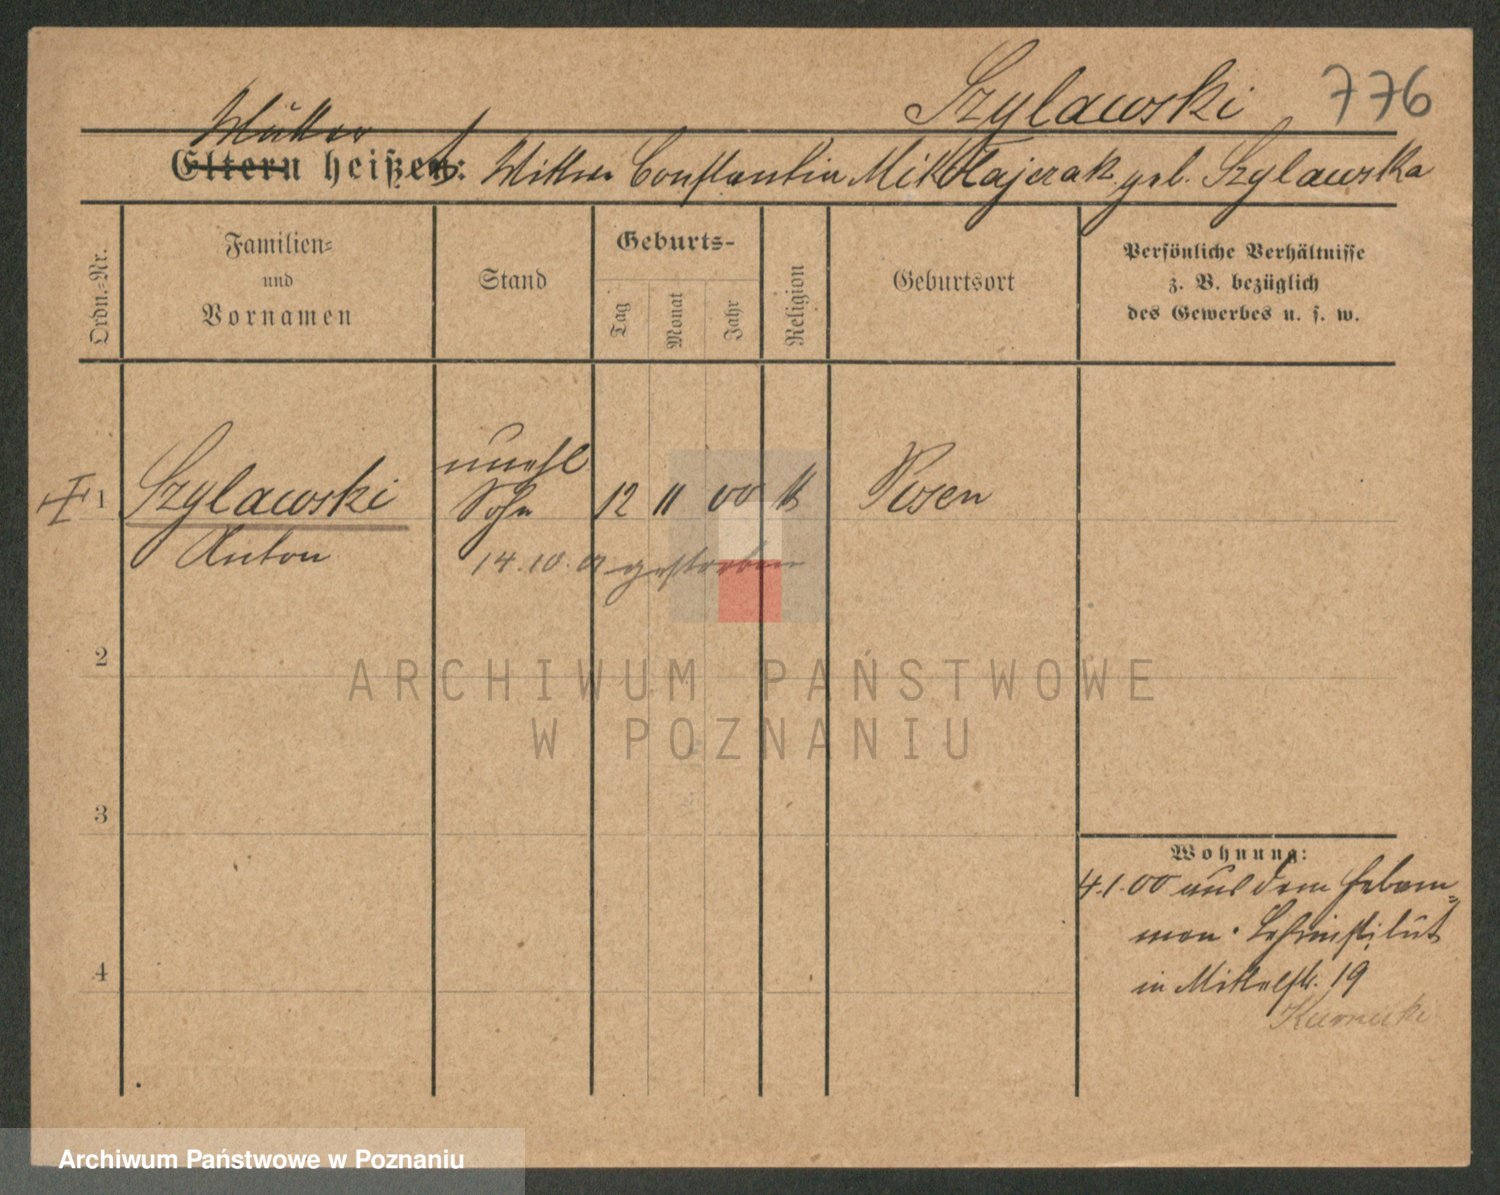 Szylawski 776
Mutter
Eltern heißen: Wittwe Constantin Mikolajczak geb. Szylawska
Ordn.-Nr.
Familien-
und
Vornamen
Stand
Geburts-
Tag
Monat
Jahr
Religion
Geburtsort
Persönliche Verhältnisse
z. B. bezüglich
des Gewerbes u. s. w.
1 Szylawski
Anton
unehl
Sohn
12 11 00 k Posen
14.10. gestorben
2
3
4
Wohnung:
4.1.00 aus dem Hebam=
men. Lehrinstitut
in Mittelstr. 19
ARCHIWUM PAŃSTWOWE
W POZNANIU
Archiwum Państwowe w Poznaniu